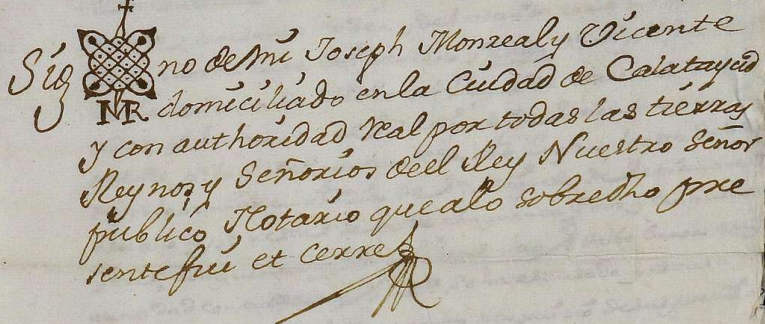 Sig no de mi Joseph Monrealy Vicente
NR domiciliado en la Ciudad de Calatayud
y con authoridad Real por todas las tierras
Reynos y Señorios deel Rey Nuestro Señor
publico Notario que alo sobredho pre
sente fui et cerre